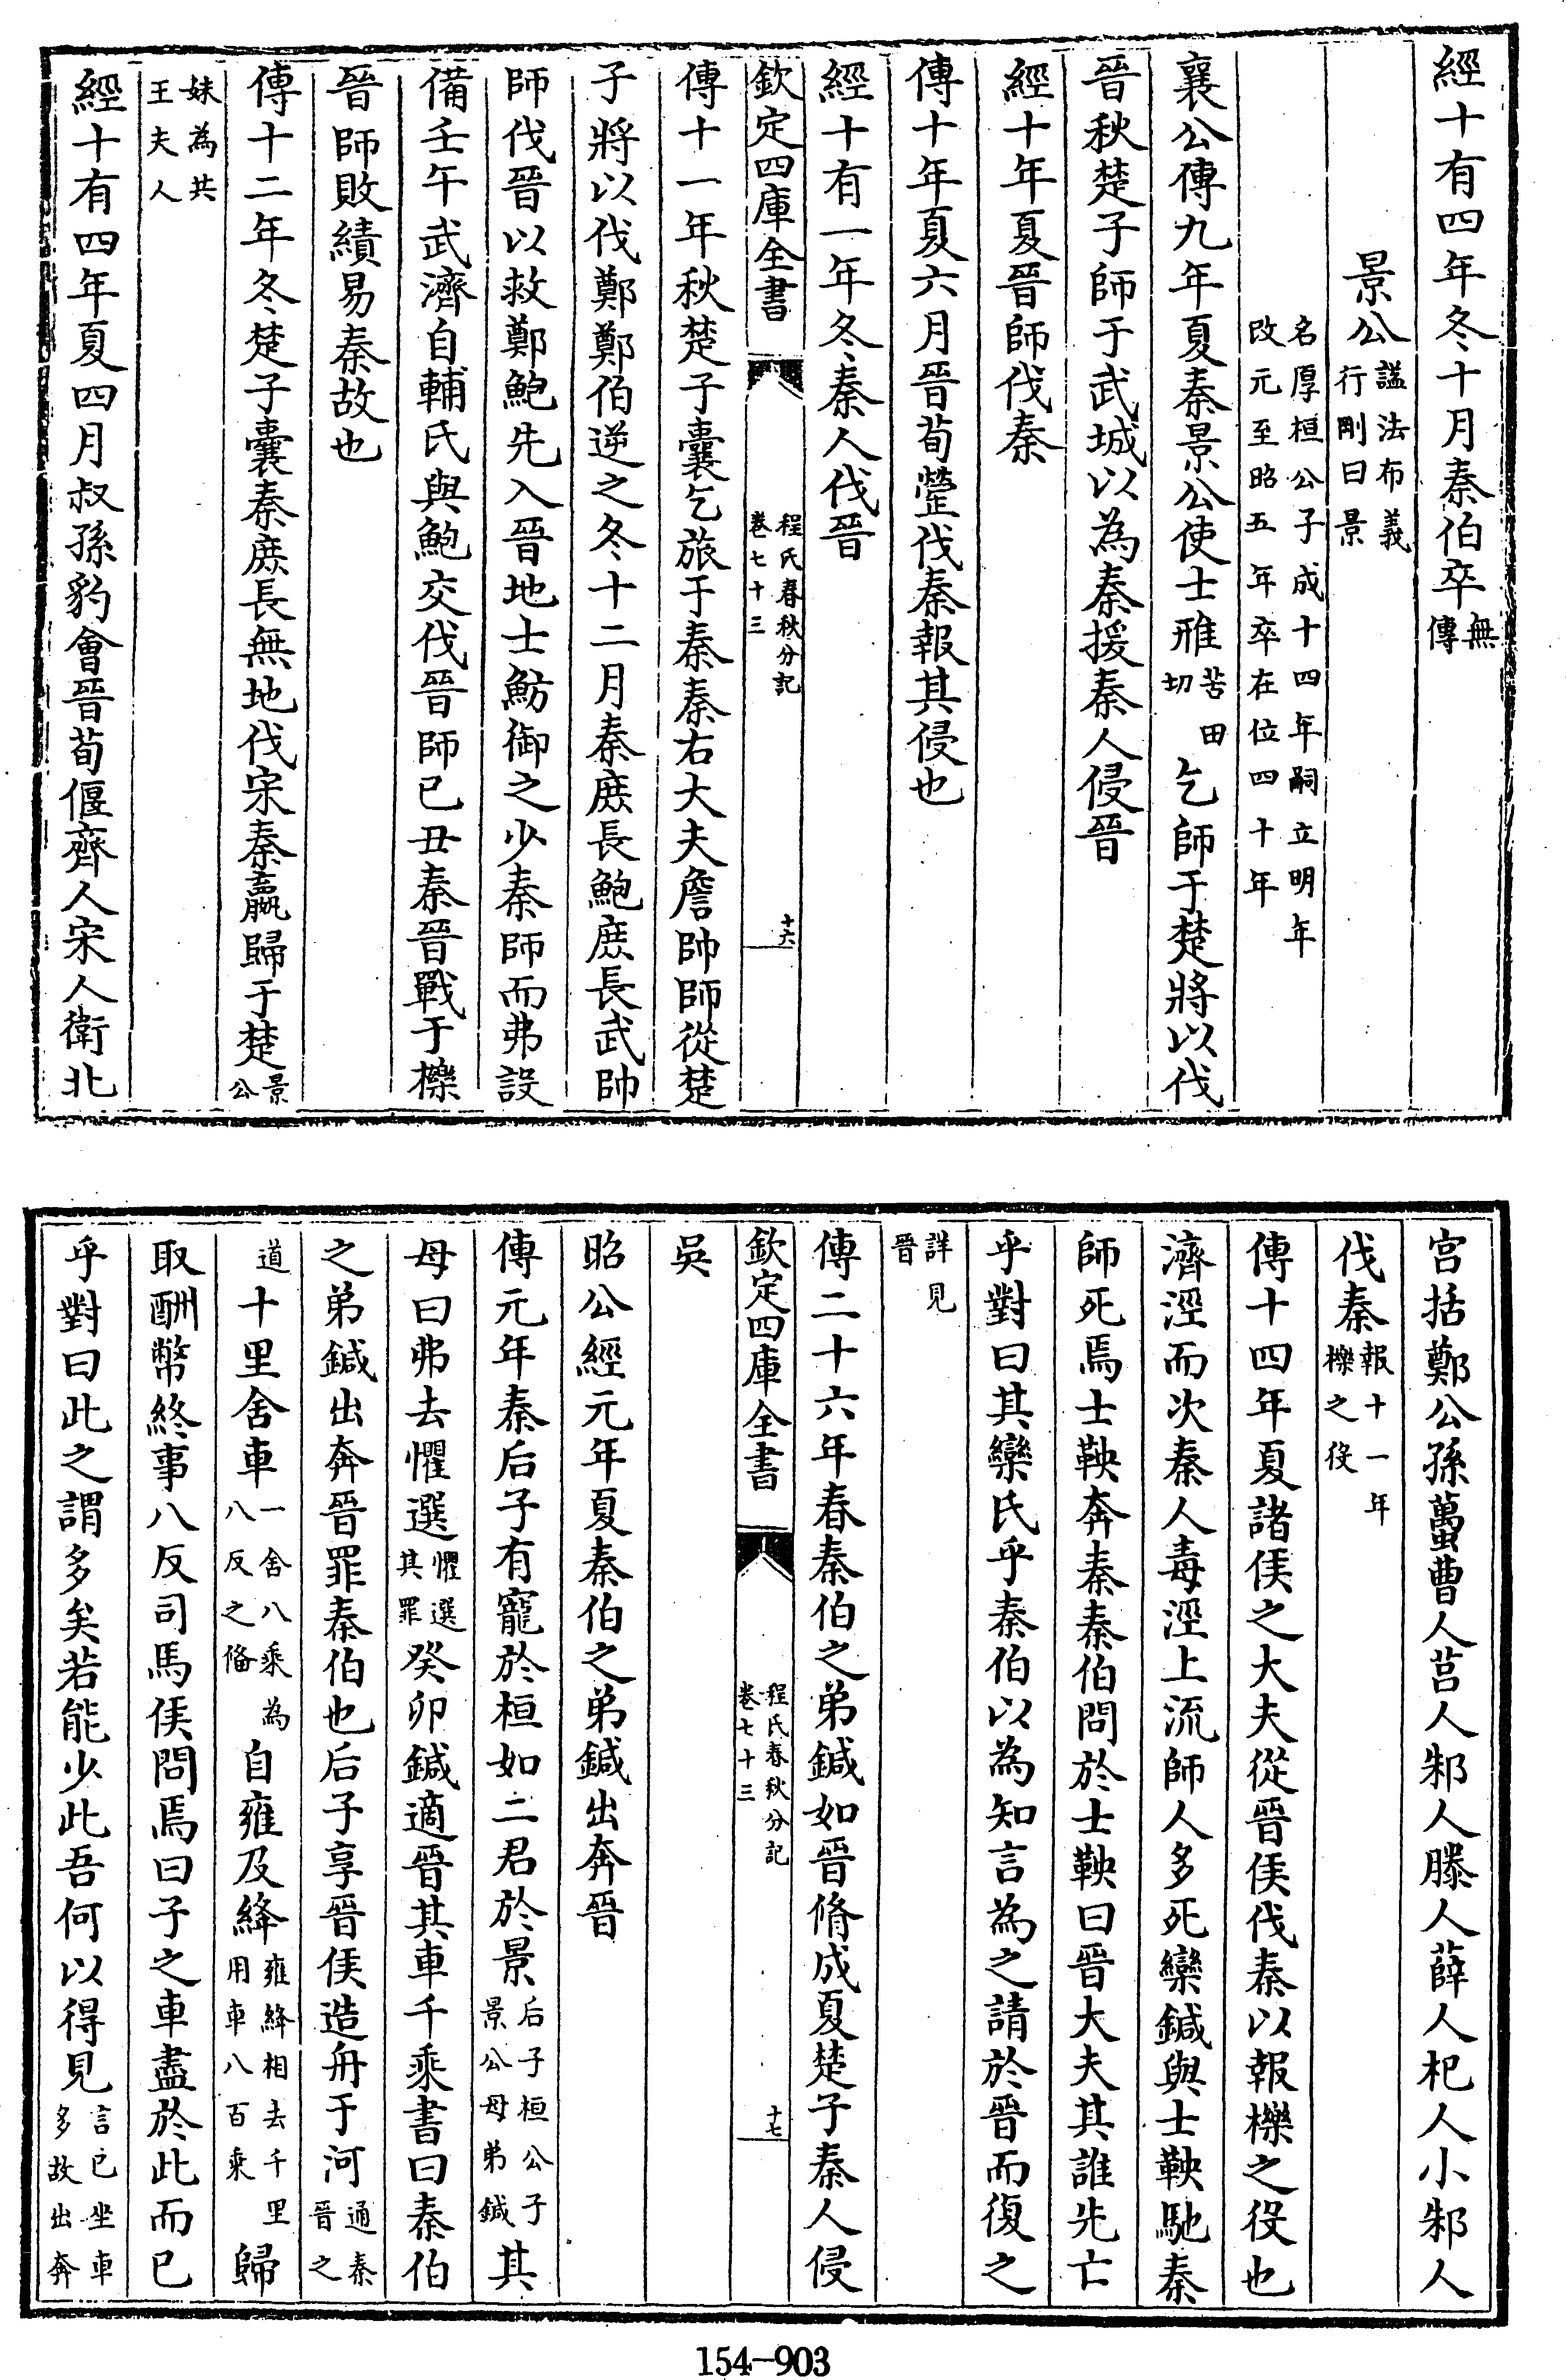 經十有四年冬十月秦伯卒無傳
景公諡法布義行剛曰景
名厚桓公子成十四年嗣立明年改元至昭五年卒在位四十年
襄公傳九年夏秦景公使士雃苦田切乞師于楚將以伐
晉秋楚子師于武城以為秦援秦人侵晉
經十年夏晉師伐秦
傳十年夏六月晉荀罃伐秦報其侵也
經十有一年冬秦人伐晉
欽定四庫全書 程氏春秋分記卷七十三 十六
傳十一年秋楚子囊乞旅于秦秦右大夫詹帥師從楚
子將以伐鄭鄭伯逆之冬十二月秦庶長鮑庶長武帥
師伐晉以救鄭鮑先入晉地士魴御之少秦師而弗設
備壬午武濟自輔氏與鮑交伐晉師已丑秦晉戰于櫟
晉師敗績易秦故也
傳十二年冬楚子囊秦庶長無地伐宋秦嬴歸于楚景公
妹為共王夫人
經十有四年夏四月叔孫豹會晉荀偃齊人宋人衛北
宫括鄭公孫蠆曹人莒人邾人滕人薛人杞人小邾人
伐秦報十一年櫟之役
傳十四年夏諸侯之大夫從晉侯伐秦以報櫟之役也
濟涇而次秦人毒涇上流師人多死欒鍼與士鞅馳秦
師死焉士鞅奔秦秦伯問於士鞅曰晉大夫其誰先亡
乎對曰其欒氏乎秦伯以為知言為之請於晉而復之
詳見晉
傳二十六年春秦伯之弟鍼如晉脩成夏楚子秦人侵
欽定四庫全書 程氏春秋分記卷七十三 十七
吳
昭公經元年夏秦伯之弟鍼出奔晉
傳元年秦后子有寵於桓如二君於景后子桓公子景公母弟鍼其
母曰弗去懼選懼選其罪癸卯鍼適晉其車千乘書曰秦伯
之弟鍼出奔晉罪秦伯也后子享晉侯造舟于河通秦晉之
道十里舍車一舍八乘為八反之偹自雍及絳雍絳相去千里用車八百乘歸
取酬幣終事八反司馬侯問焉曰子之車盡於此而已
乎對曰此之謂多矣若能少此吾何以得見言已坐車多故出奔
154-903